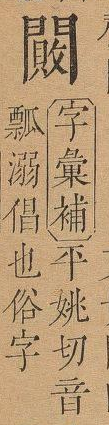 字彙補平姚切音
瓢溺倡也俗字